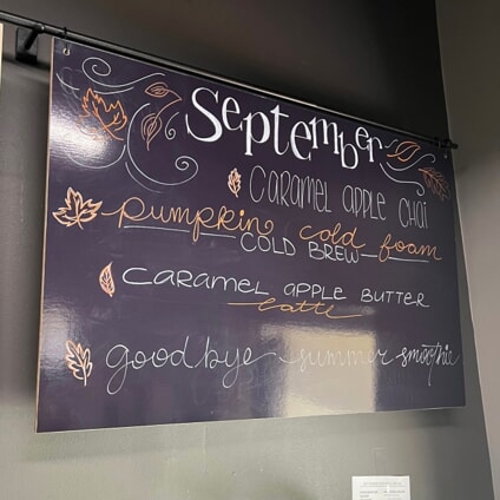 September
Caramel Apple Chai
Pumpkin cold foam
COLD BREW
Caramel Apple Butter
latte
goodbye summer smoothie